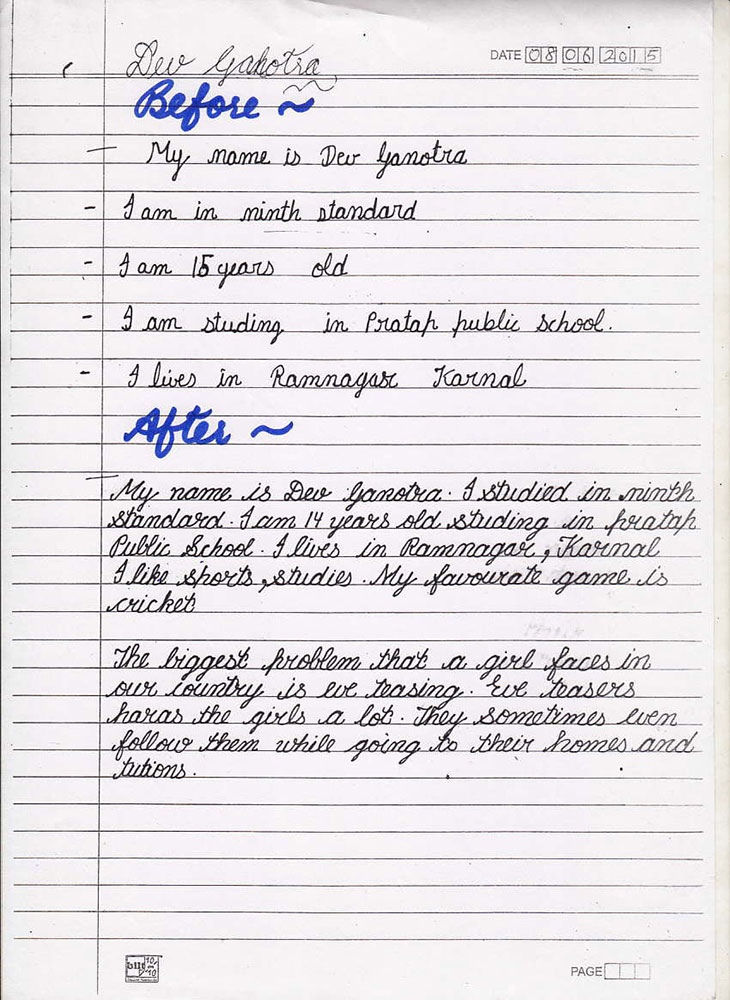 DATE 08 06 2015
Dev Ganotra
Before ~
— My name is Dev Ganotra
- I am in ninth standard
- I am 15 years old
- I am studing in Pratap public school.
- I lives in Ramnagar Karnal
After ~
My name is Dev Ganotra. I studied in ninth
standard. I am 14 years old studing in pratap
Public School. I lives in Ramnagar, Karnal
I like sports, studies. My favourate game is
cricket
The biggest problem that a girl faces in
our country is eve teasing. Eve teasers
haras the girls a lot. They sometimes even
follow them while going to their homes and
tutions.
PAGE